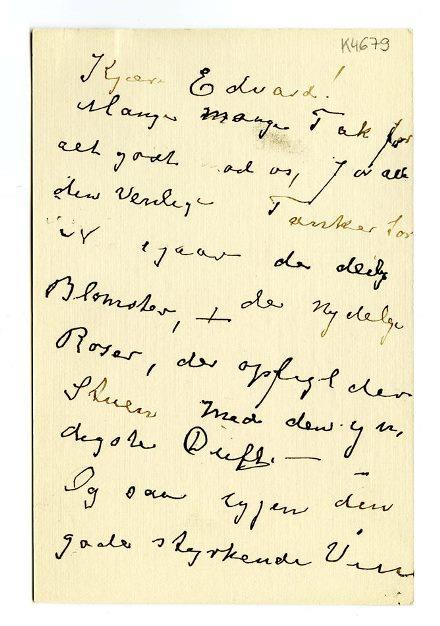 K4679
Kjære Edvard!
Mange mange Tak for
alt godt mod os, for alle
din Venlige Tanker for
os igaar de deilige
Blomster, + de nydelige
Roser, der opfylder
Stuen med den yn,
digste Duft. —
Og saa igjen din
gode styrkende Vin